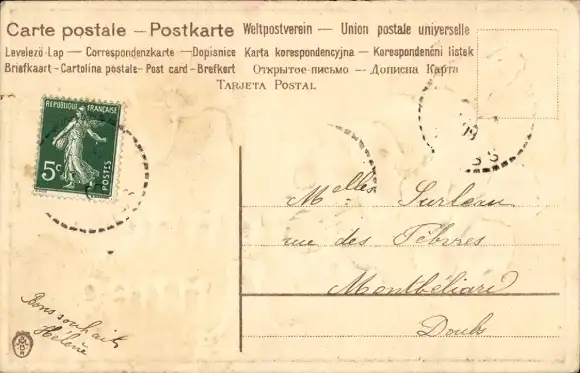 Carte postale – Postkarte Weltpostverein – Union postale universelle
Levelező Lap — Correspondenzkarte — Dopisnice Karta korespondencyjna – Korespondenční lístek
Briefkaart – Cartolina postale – Post card – Brefkort Открытое письмо – Дописна Карта
TARJETA POSTAL
REPUBLIQUE FRANÇAISE
5c
POSTES
09
Melles Surleau
rue des Fèbvres
Montbéliard
Doubs
Bons souhaits
Hélène